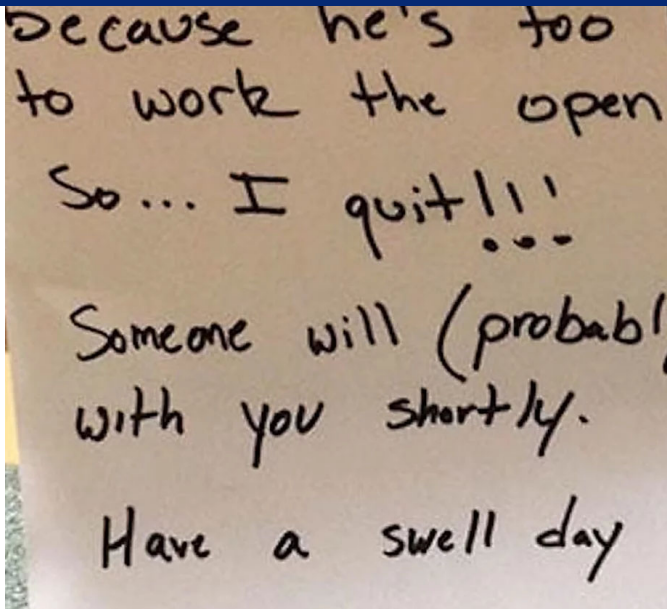 because he's too
to work the open
So... I quit!!!
Someone will (probabl
with you shortly.
Have a swell day